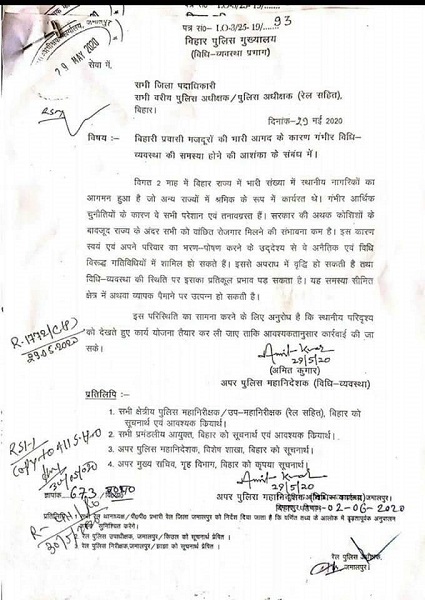 पत्र सं०- I.O-3/25-19/....... 93
बिहार पुलिस मुख्यालय
(विधि-व्यवस्था प्रभाग)
29 MAY 2020
सेवा में,
सभी जिला पदाधिकारी
सभी वरीय पुलिस अधीक्षक/पुलिस अधीक्षक (रेल सहित),
बिहार।
दिनांक-29 मई 2020
विषय :- बिहारी प्रवासी मजदूरों की भारी आमद के कारण गंभीर विधि-
व्यवस्था की समस्या होने की आशंका के संबंध में।
विगत 2 माह में बिहार राज्य में भारी संख्या में स्थानीय नागरिकों का
आगमन हुआ है जो अन्य राज्यों में श्रमिक के रूप में कार्यरत थे। गंभीर आर्थिक
चुनौतियों के कारण वे सभी परेशान एवं तनावग्रस्त हैं। सरकार की अथक कोशिशों के
बावजूद राज्य के अंदर सभी को वांछित रोजगार मिलने की संभावना कम है। इस कारण
स्वयं एवं अपने परिवार का भरण-पोषण करने के उद्देश्य से वे अनैतिक एवं विधि
विरूद्ध गतिविधियों में शामिल हो सकते हैं। इससे अपराध में वृद्धि हो सकती है तथा
विधि-व्यवस्था की स्थिति पर इसका प्रतिकूल प्रभाव पड़ सकता है। यह समस्या सीमित
क्षेत्र में अथवा व्यापक पैमाने पर उत्पन्न हो सकती है।
इस परिस्थिति का सामना करने के लिए अनुरोध है कि स्थानीय परिदृश्य
को देखते हुए कार्य योजना तैयार कर ली जाए ताकि आवश्यकतानुसार कार्रवाई की जा
सके।
R-1772/C(R)
29.05.2020
Amit Kumar
29/5/20
(अमित कुमार)
अपर पुलिस महानिदेशक (विधि-व्यवस्था)
प्रतिलिपि :-
1. सभी क्षेत्रीय पुलिस महानिरीक्षक/उप-महानिरीक्षक (रेल सहित), बिहार को
सूचनार्थ एवं आवश्यक कियार्थ।
2. सभी प्रमंडलीय आयुक्त, बिहार को सूचनार्थ एवं आवश्यक कियार्थ।
3. अपर पुलिस महानिदेशक, विशेष शाखा, बिहार को सूचनार्थ।
4. अपर मुख्य सचिव, गृह विभाग, बिहार को कृपया सूचनार्थ।
Amit Kumar
29/5/20
अपर पुलिस महानिदेशक (विधि-व्यवस्था)
ज्ञापांक 673
दिनांक-02-06-2020
प्रतिलिपि :-
2. रेल पुलिस उपाधीक्षक, जमालपुर/
3. रेल पुलिस निरीक्षक, जमालपुर/
रेल पुलिस अधीक्षक,
जमालपुर।